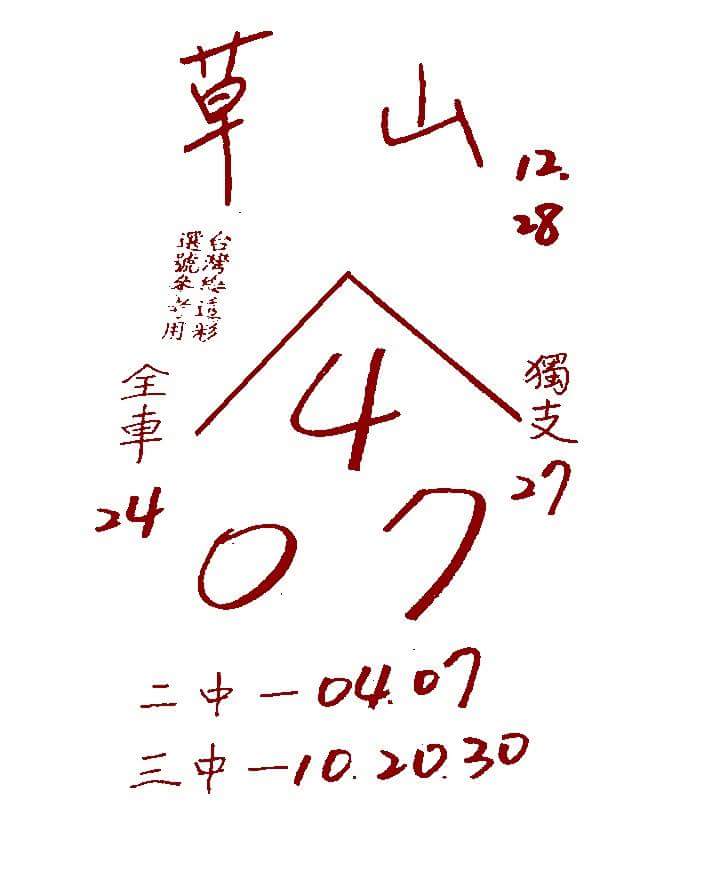 草山
12.
28
台灣樂透彩
選號參考用
4
全車
獨支
24
27
0 7
二中一04.07
三中一10.20.30